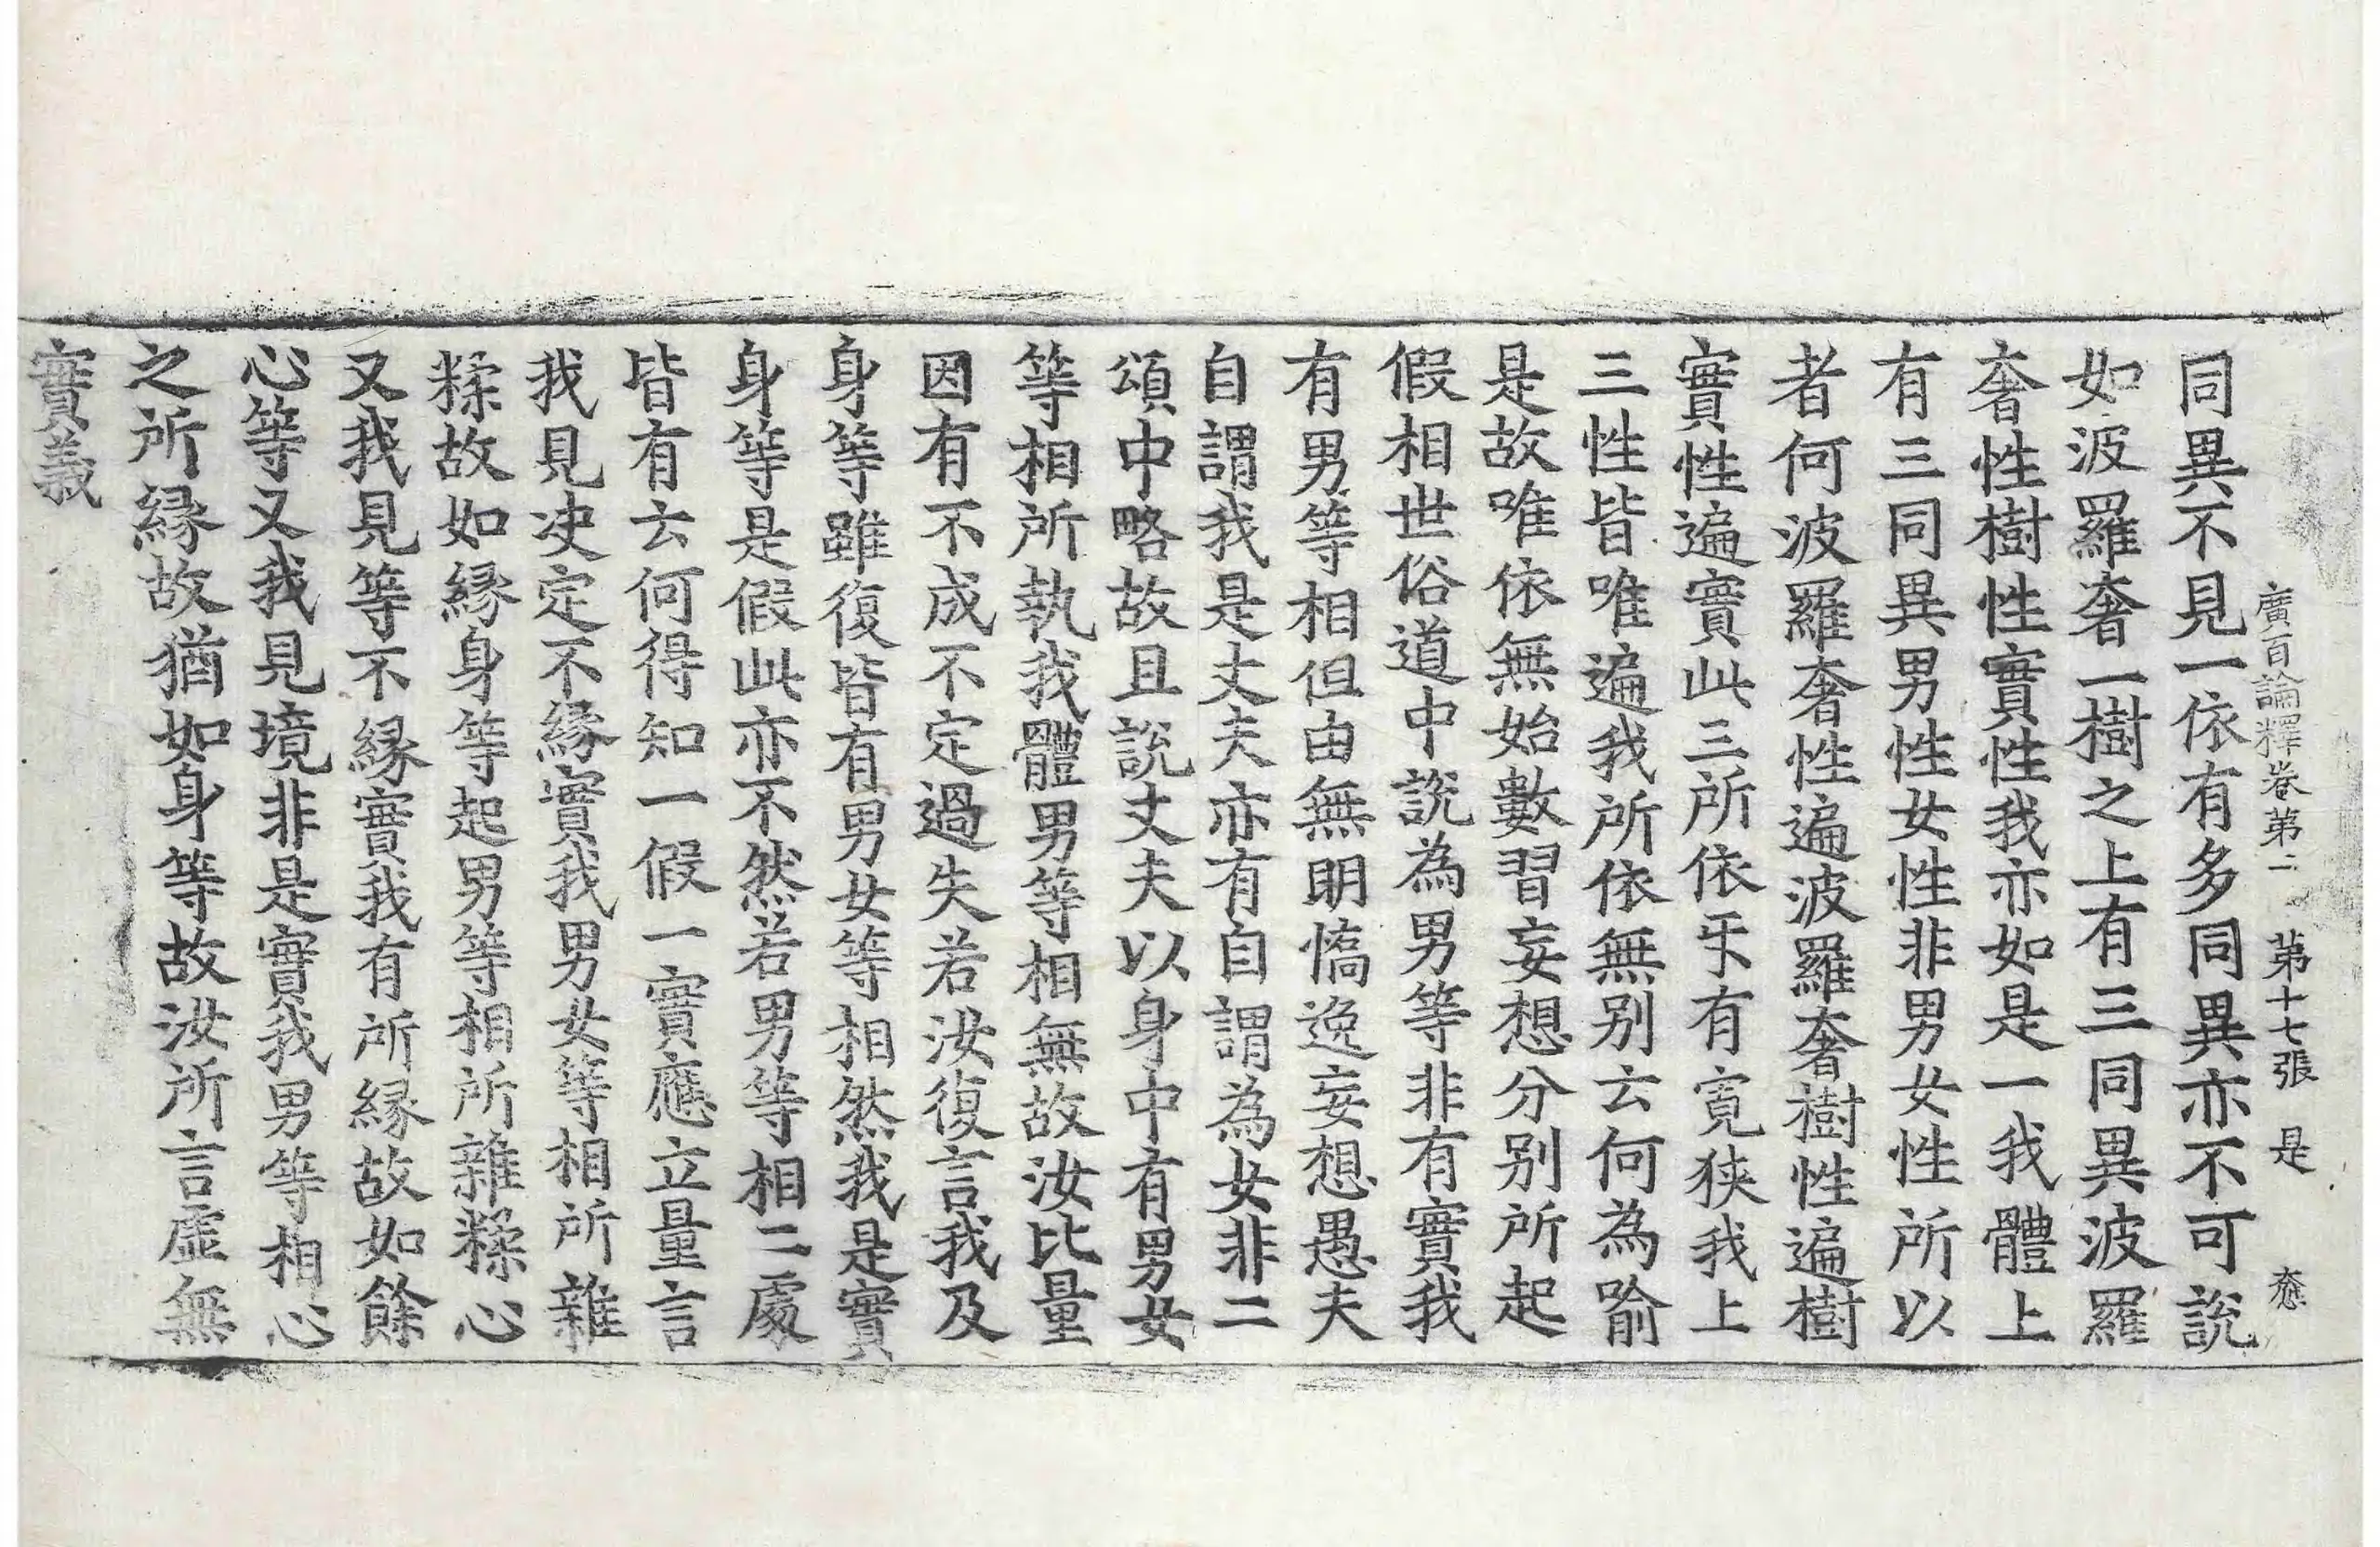 廣百論釋卷第二 第十七張 是
同異不見一依有多同異亦不可説
如波羅奢一樹之上有三同異波羅
奢性樹性實性我亦如是一我體上
有三同異男性女性非男女性所以
者何波羅奢性遍波羅奢樹性遍樹
實性遍實此三所依㸦有寬狹我上
三性皆唯遍我所依無别云何為喻
是故唯依無始數習妄想分别所起
假相世俗道中説為男等非有實我
有男等相但由無明憍逸妄想愚夫
自謂我是丈夫亦有自謂為女非二
頌中略故且説丈夫以身中有男女
等相所執我體男等相無故汝比量
因有不成不定過失若汝復言我及
身等雖復皆有男女等相然我是實
身等是假此亦不然若男等相二處
皆有云何得知一假一實應立量言
我見决定不縁實我男女等相所雜
糅故如縁身等起男等相所雜糅心
又我見等不縁實我有所縁故如餘
心等又我見境非是實我男等相心
之所縁故猶如身等故汝所言虛無
實義